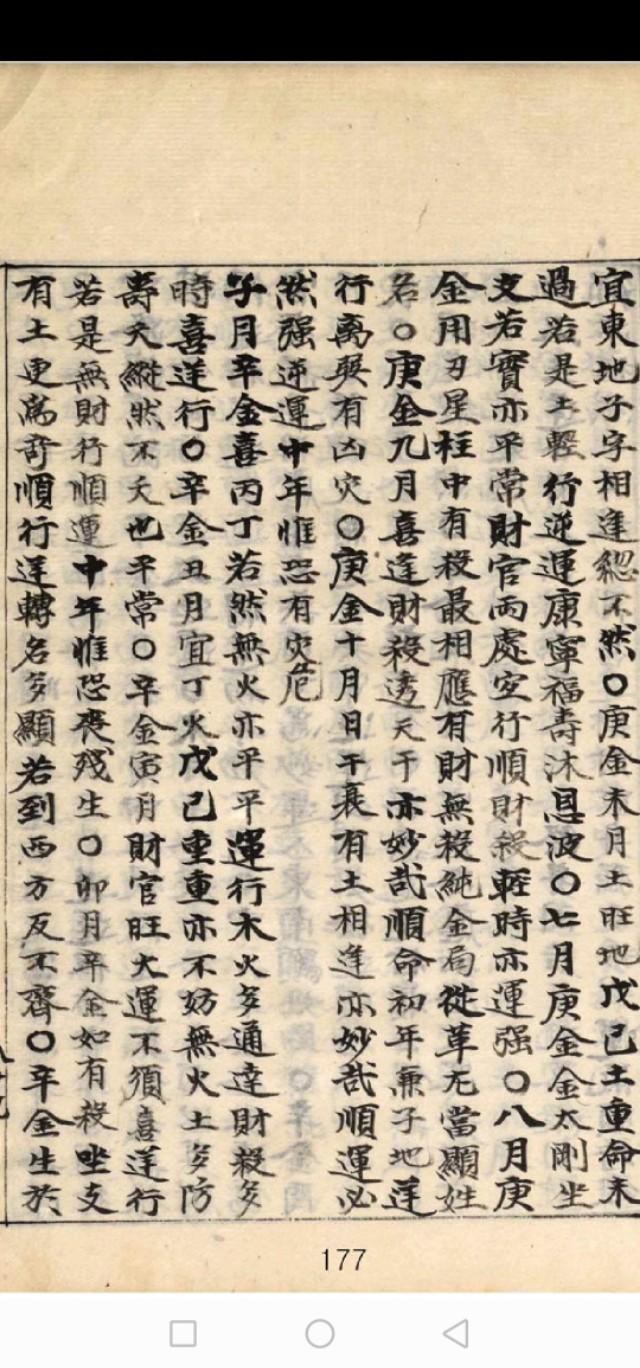 宜東地子字相逢緫不然〇庚金未月土旺地戊己土重命未
過若是土輕行逆運康寧福壽沐恩波〇七月庚金金太剛坐
支若寅亦平常財官両處空行順財殺輕時亦運强〇八月庚
金用刃星柱中有殺最相應有財無殺純金局從革无當顯姓
名〇庚金九月喜逢財殺透天干亦妙哉順命初年兼子地逆
行离巽有凶灾〇庚金十月日干衰有土相逢亦妙哉順運必
然强逆運中年惟恐有灾危
子月辛金喜丙丁若然無火亦平平運行木火多通達財殺多
時喜逆行〇辛金丑月宜丁火戊己重重亦不妨無火土多防
壽夭縱然不夭也平常〇辛金寅月財官旺大運不須喜逆行
若是無財行順運中年惟恐喪残生〇卯月辛金如有殺坐支
有土更為竒順行逆轉名多顯若到西方反不齊〇辛金生於
177